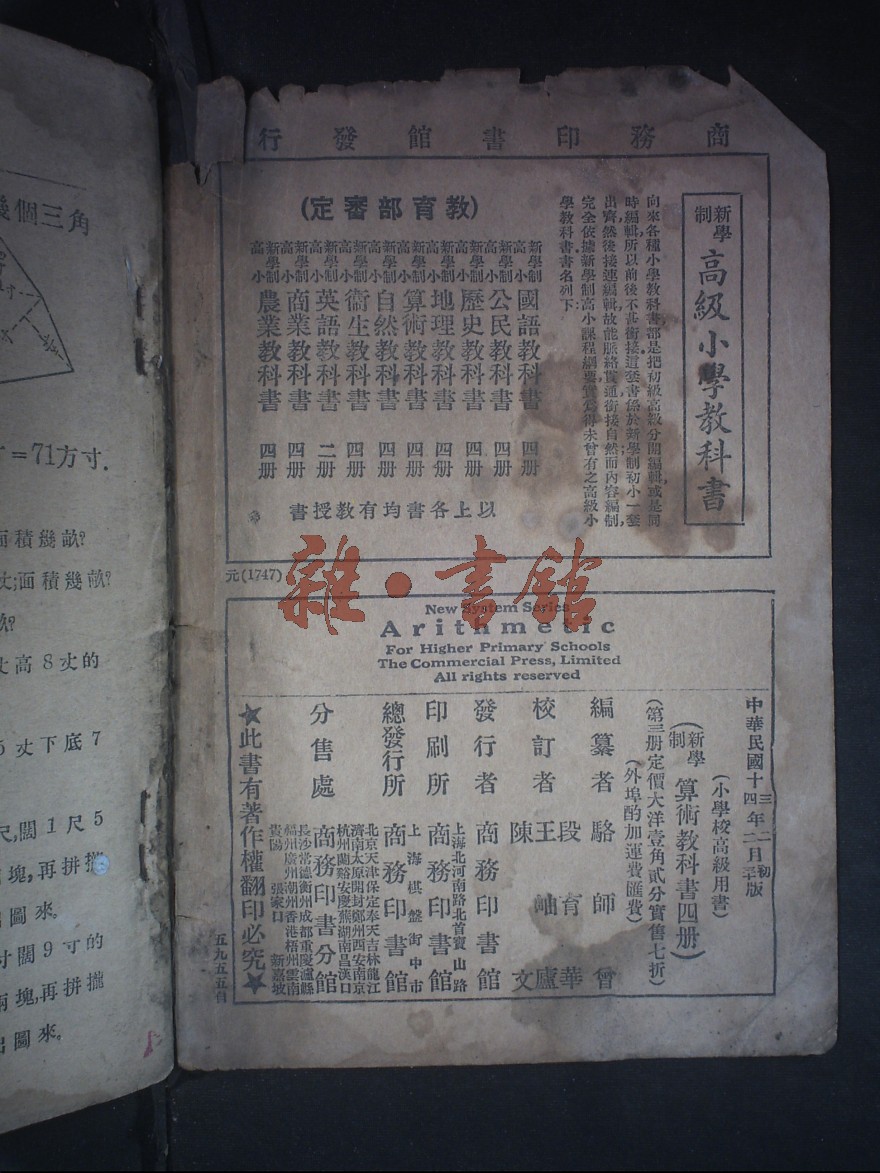 商務印書館發行
新學制
高級小學教科書
向來各種小學教科書都是把初級高級分開編輯,或是同
時編輯,所以前後不甚銜接;這套書係於新學制初小一套
出齊然後接連編輯,故能脈絡貫通,銜接自然,而內容編制,
完全依據新學制高小課程綱要,實為得未曾有之高級小
學教科書書名列下:
(教育部審定)
新學制高小 國語教科書 四册
新學制高小 公民教科書 四册
新學制高小 歷史教科書 四册
新學制高小 地理教科書 四册
新學制高小 算術教科書 四册
新學制高小 自然教科書 四册
新學制高小 衞生教科書 四册
新學制高小 英語教科書 二册
新學制高小 商業教科書 四册
新學制高小 農業教科書 四册
以上各書均有教授書
元(1747)
雜·書館
New System Series
Arithmetic
For Higher Primary Schools
The Commercial Press, Limited
All rights reserved
中華民國十三年二月初版
四 二
(小學校高級用書)
(新學制 算術教科書四册)
(第三册定價大洋壹角貳分實售七折)
(外埠酌加運費匯費)
編纂者 駱師曾
校訂者 段育華
王岫廬
陳文
發行者 商務印書館
印刷所 上海北河南路北首寶山路
商務印書館
總發行所 上海棋盤街中市
商務印書館
分售處 商務印書分館
北京天津保定奉天吉林龍江
濟南太原開封鄭州西安南京
杭州蘭谿安慶蕪湖南昌漢口
長沙常德衡州成都重慶瀘縣
福州廣州潮州香港梧州雲南
貴陽 張家口 新嘉坡
★此書有著作權翻印必究★
五九五五自
幾個三角
=71方寸.
面積幾畝?
丈;面積幾畝?
畝?
丈高8丈的
5丈下底7
尺,闊1尺5
塊,再拼攏
出圖來。
寸闊9寸的
兩塊,再拼攏
出圖來。